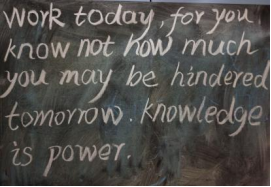 Work today, for you
know not how much
you may be hindered
tomorrow. knowledge
is power.